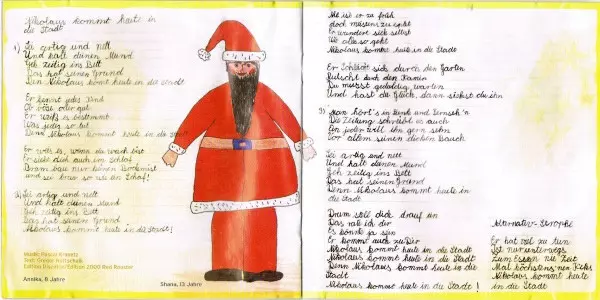 Nikolaus kommt heute in
die Stadt
1) Sei artig und nett
Und halt deinen Mund
Geh zeitig ins Bett
Das hat seinen Grund
Denn Nikolaus kommt heute in die Stadt
Er kennt jedes Kind
Ob böse oder gut
Er weiß es bestimmt
Was jedes so tut
Denn Nikolaus kommt heute in die Stadt
Er weiß es, wenn du wach bist
Er sieht dich auch im Schlaf
Drum bau nur keinen
und sei brav so wie ein Schaf!
2) Sei artig und nett
Und halt deinen Mund
Geh zeitig ins Bett
Das hat seinen Grund
Nikolaus kommt heute in die Stadt!
Musik:
Text: Gregor Rottschalk
Edition 2000 Red Rooster
Annika, 8 Jahre
Shana, 13 Jahre
Mal ist er zu früh
doch meistens zu spät
Er wundert sich selbst
Wie alles so geht
Nikolaus kommt heute in die Stadt
Er schleicht sich durch den Garten
Rutscht durch den Kamin
Du musst geduldig warten
Und hast du Glück, dann siehst du ihn
3) Man hört's in Funk und Fernseh'n
Die Zeitung schreibt es auch
Ein jeder will ihn gern sehn
Vor allem seinen dicken Bauch
Sei artig und nett
Und halt deinen Mund
Geh zeitig ins Bett
Das hat seinen Grund
Denn Nikolaus kommt heute in
die Stadt
Drum stell dich drauf ein
Das rat ich dir
Es könnte ja sein
Er kommt auch zu Dir
Nikolaus kommt heute in die Stadt
Nikolaus kommt heute in die Stadt
Denn Nikolaus kommt heute in die
Stadt
Nikolaus kommt heute in die Stadt!
Alternativ-Strophe
Er hat viel zu tun
Ist nur unterwegs
Zum Essen nie Zeit
Mal höchstens 'nen Keks
Nikolaus kommt heute
in die Stadt